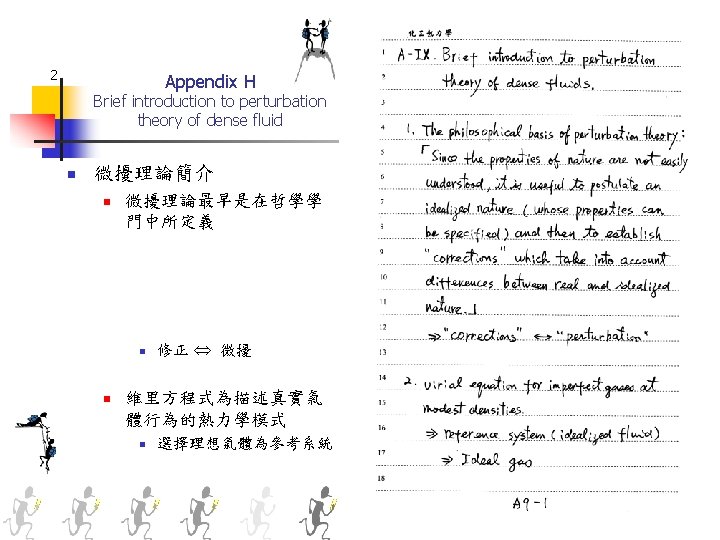 2
Appendix H
Brief introduction to perturbation
theory of dense fluid
微擾理論簡介
微擾理論最早是在哲學學
門中所定義
修正 ⇔ 微擾
維里方程式為描述真實氣
體行為的熱力學模式
選擇理想氣體為參考系統
化工熱力學
1 A-IX. Brief introduction to perturbation
2 theory of dense fluids.
3
4 1. The philosophical basis of perturbation theory:
5 「Since the properties of nature are not easily
6 understood, it is useful to postulate an
7 idealized nature (whose properties can
8 be specified) and then to establish
9 "corrections" which take into account
10 differences between real and idealized
11 nature.」
12 ⇒ "corrections" ↔ "perturbation"
13
14 2. virial equation for imperfect gases at
15 modest densities.
16 ⇒ reference system (idealized fluid)
17 ⇒ Ideal gas
18
A9-1